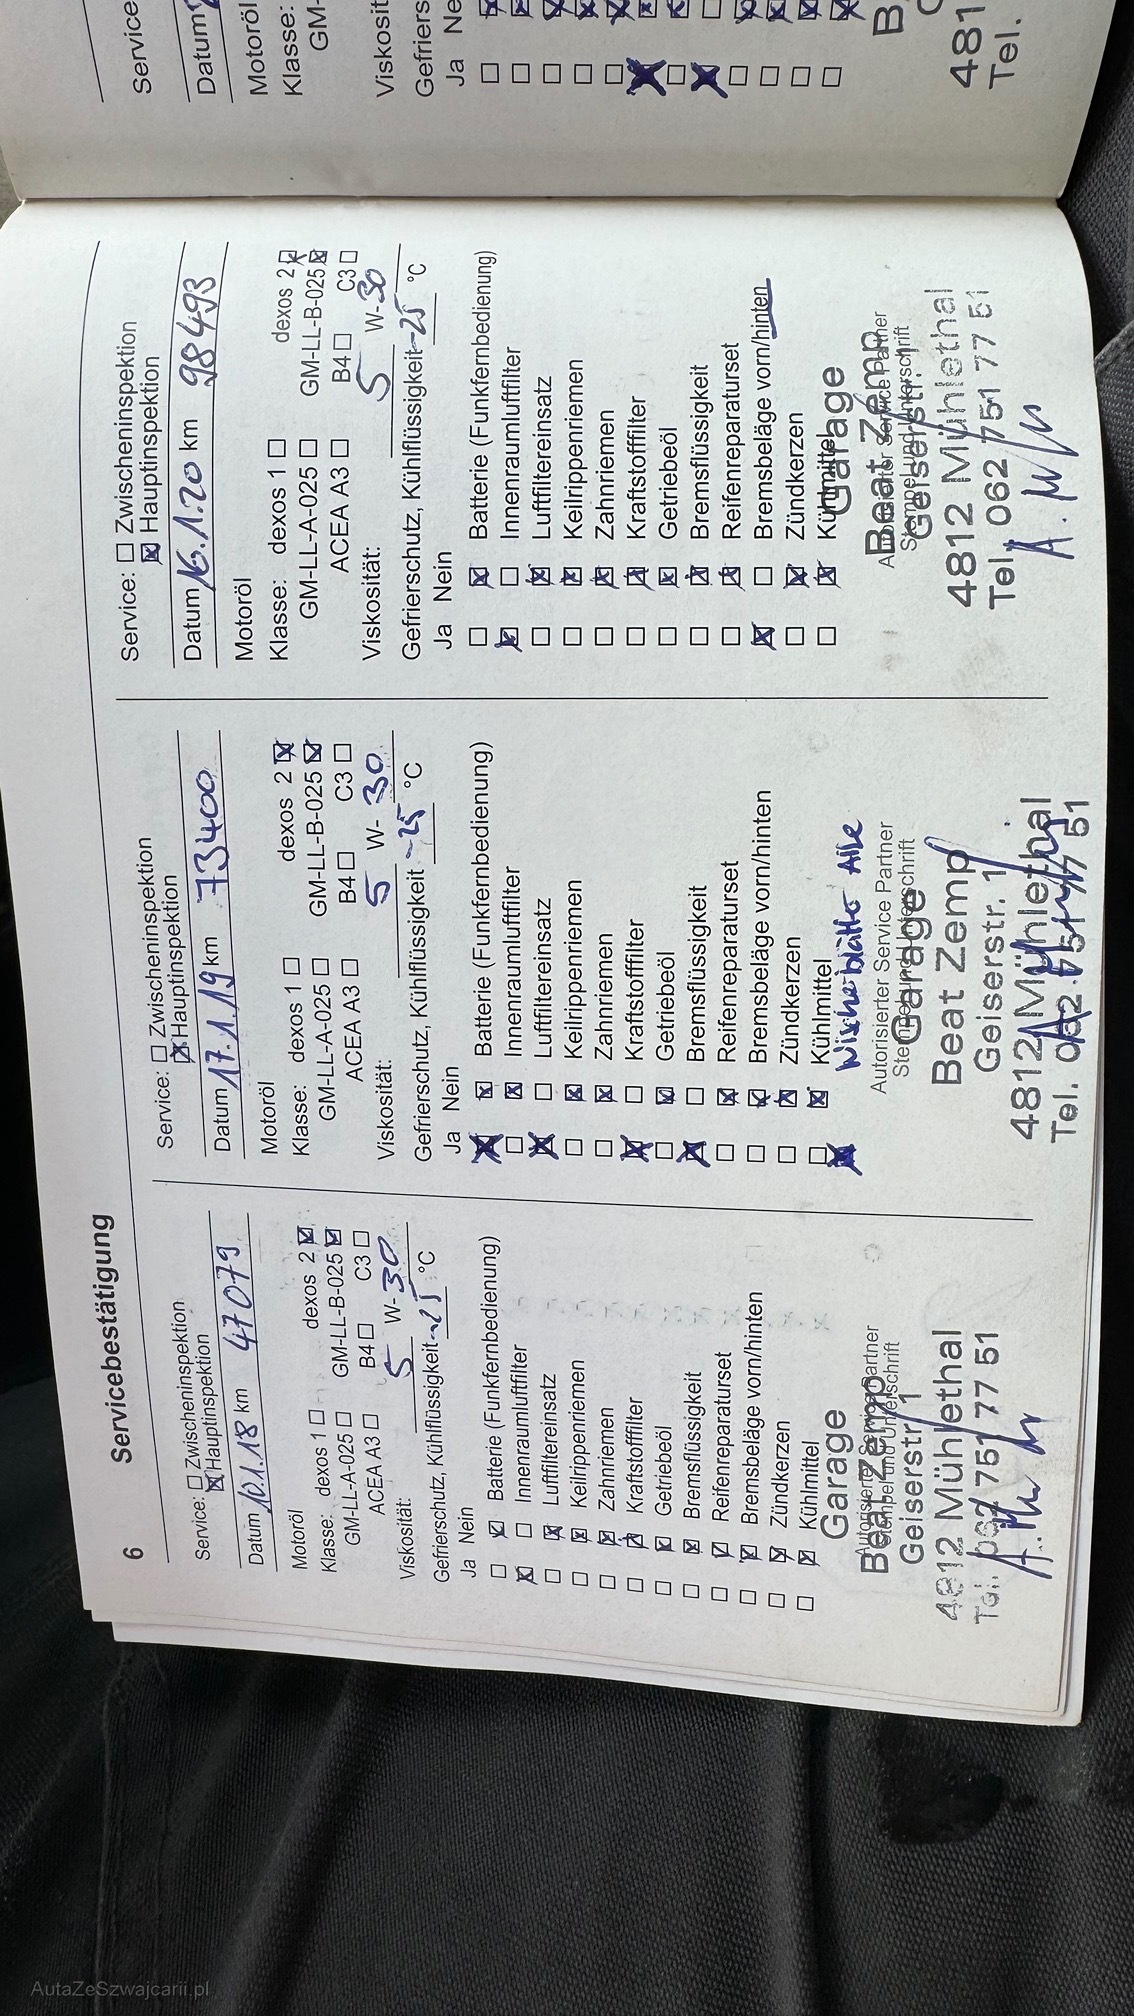 6 Servicebestätigung
Service: Zwischeninspektion
Hauptinspektion
Datum 10.1.18 km 47079
Motoröl
Klasse: dexos 1 dexos 2
GM-LL-A-025 GM-LL-B-025
ACEA A3 B4 C3
Viskosität: 5 W- 30
Gefrierschutz, Kühlflüssigkeit -25 °C
Ja Nein
Batterie (Funkfernbedienung)
Innenraumluftfilter
Luftfiltereinsatz
Keilrippenriemen
Zahnriemen
Kraftstofffilter
Getriebeöl
Bremsflüssigkeit
Reifenreparaturset
Bremsbeläge vorn/hinten
Zündkerzen
Kühlmittel
Autorisierter Service Partner
Stempel und Unterschrift
Garage
Beat Zemp
Geiserstr. 1
4812 Mühlethal
Tel. 062 751 77 51
Service: Zwischeninspektion
Hauptinspektion
Datum 17.1.19 km 73400
Motoröl
Klasse: dexos 1 dexos 2
GM-LL-A-025 GM-LL-B-025
ACEA A3 B4 C3
Viskosität: 5 W- 30
Gefrierschutz, Kühlflüssigkeit -25 °C
Ja Nein
Batterie (Funkfernbedienung)
Innenraumluftfilter
Luftfiltereinsatz
Keilrippenriemen
Zahnriemen
Kraftstofffilter
Getriebeöl
Bremsflüssigkeit
Reifenreparaturset
Bremsbeläge vorn/hinten
Zündkerzen
Kühlmittel
Wischerblätter Alle
Autorisierter Service Partner
Stempel und Unterschrift
Garage
Beat Zemp
Geiserstr. 1
4812 Mühlethal
Tel. 062 751 77 51
Service: Zwischeninspektion
Hauptinspektion
Datum 16.1.20 km 98493
Motoröl
Klasse: dexos 1 dexos 2
GM-LL-A-025 GM-LL-B-025
ACEA A3 B4 C3
Viskosität: 5 W-30
Gefrierschutz, Kühlflüssigkeit -25 °C
Ja Nein
Batterie (Funkfernbedienung)
Innenraumluftfilter
Luftfiltereinsatz
Keilrippenriemen
Zahnriemen
Kraftstofffilter
Getriebeöl
Bremsflüssigkeit
Reifenreparaturset
Bremsbeläge vorn/hinten
Zündkerzen
Kühlmittel
Autorisierter Service Partner
Stempel und Unterschrift
Garage
Beat Zemp
Geiserstr. 1
4812 Mühlethal
Tel. 062 751 77 51
Service
Datum
Motoröl
Klasse:
GM-
Viskosit
Gefriers
Ja Ne
B
481
Tel.
AutaZeSzwajcarii.pl